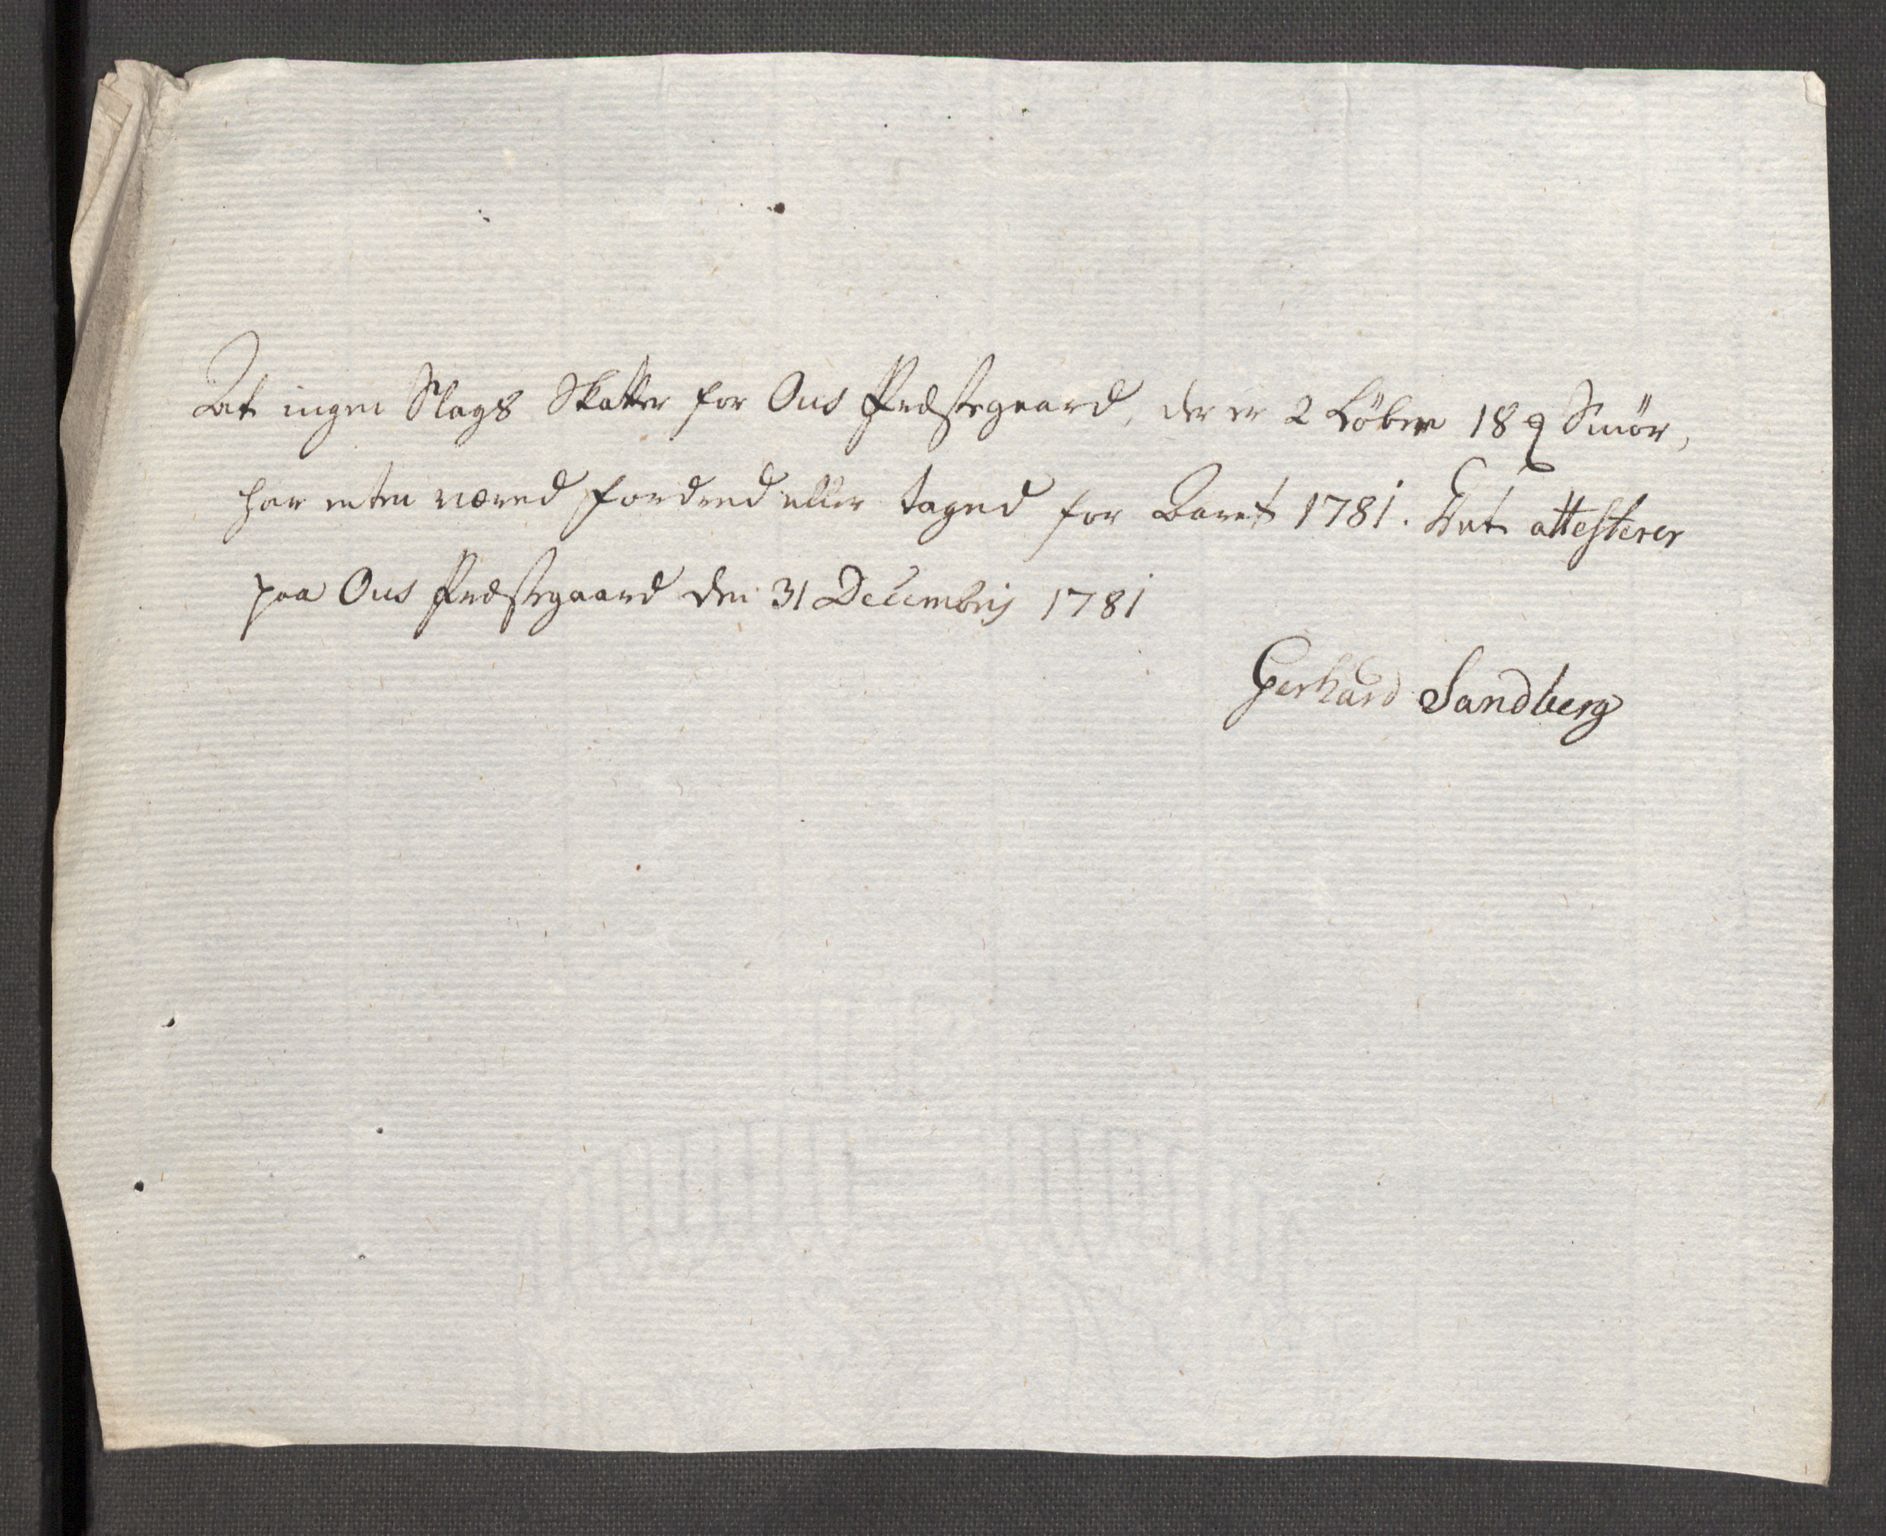 At ingen Slags Skatter for Ous Præstegaard, der er 2 Løber 18 Smör,
har enten været fordred eller taged for Aaret 1781. Det attesterer
paa Ous Præstegaard den 31 Decembris 1781
Gerhard Sandberg